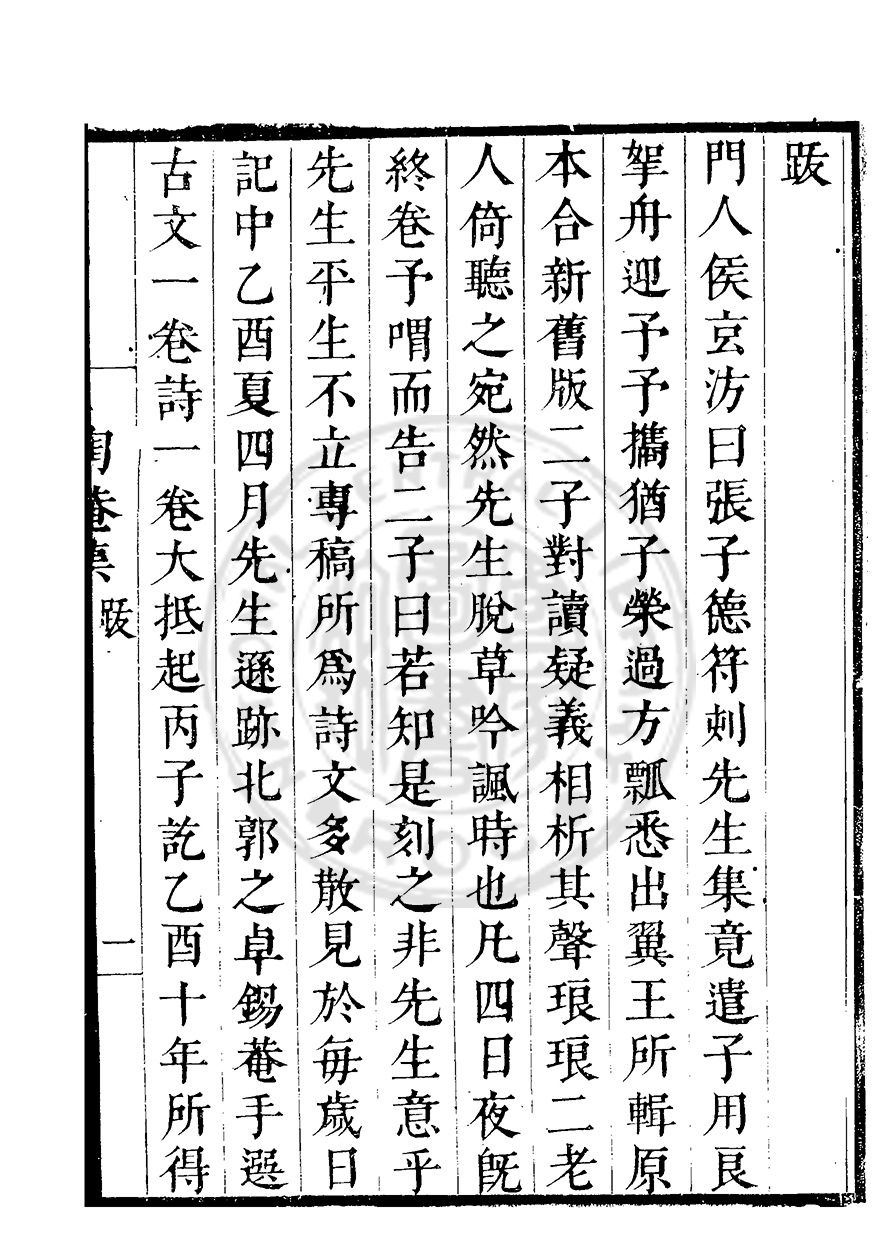 跋
門人侯玄汸曰張子德符刻先生集竟遣子用良
挐舟迎予予攜猶子榮過方瓢悉出翼王所輯原
本合新舊版二子對讀疑義相析其聲琅琅二老
人倚聽之宛然先生脫草吟諷時也凡四日夜既
終卷予喟而告二子曰若知是刻之非先生意乎
先生平生不立專稿所爲詩文多散見於每歲日
記中乙酉夏四月先生遜跡北郭之卓錫菴手選
古文一卷詩一卷大抵起丙子訖乙酉十年所得
陶菴集
跋
一